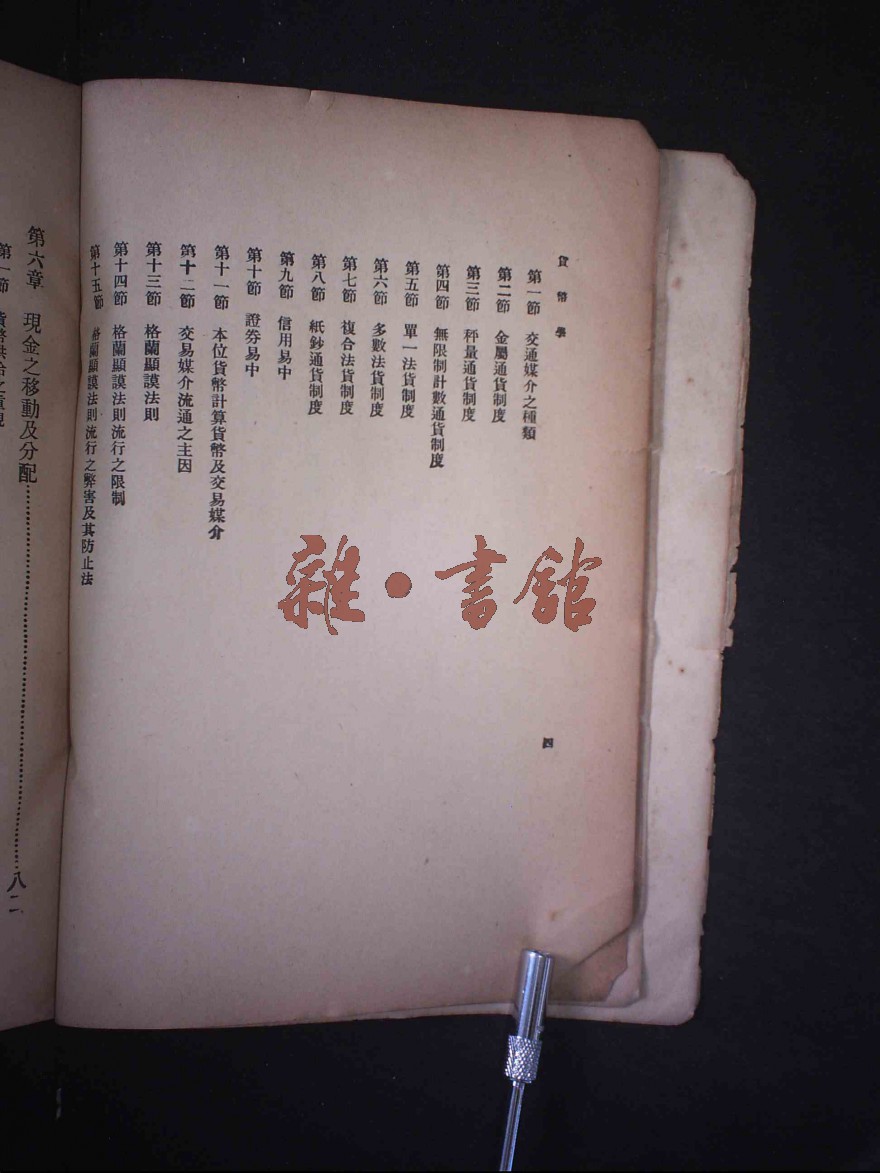 貨幣學
第一節 交通媒介之種類
第二節 金屬通貨制度
第三節 秤量通貨制度
第四節 無限制計數通貨制度
第五節 單一法貨制度
第六節 多數法貨制度
第七節 複合法貨制度
第八節 紙鈔通貨制度
第九節 信用易中
第十節 證券易中
第十一節 本位貨幣計算貨幣及交易媒介
第十二節 交易媒介流通之主因
第十三節 格蘭顯謨法則
第十四節 格蘭顯謨法則流行之限制
第十五節 格蘭顯謨法則流行之弊害及其防止法
四
第六章 現金之移動及分配……八二
第一節 貨幣供給之
雜·書館